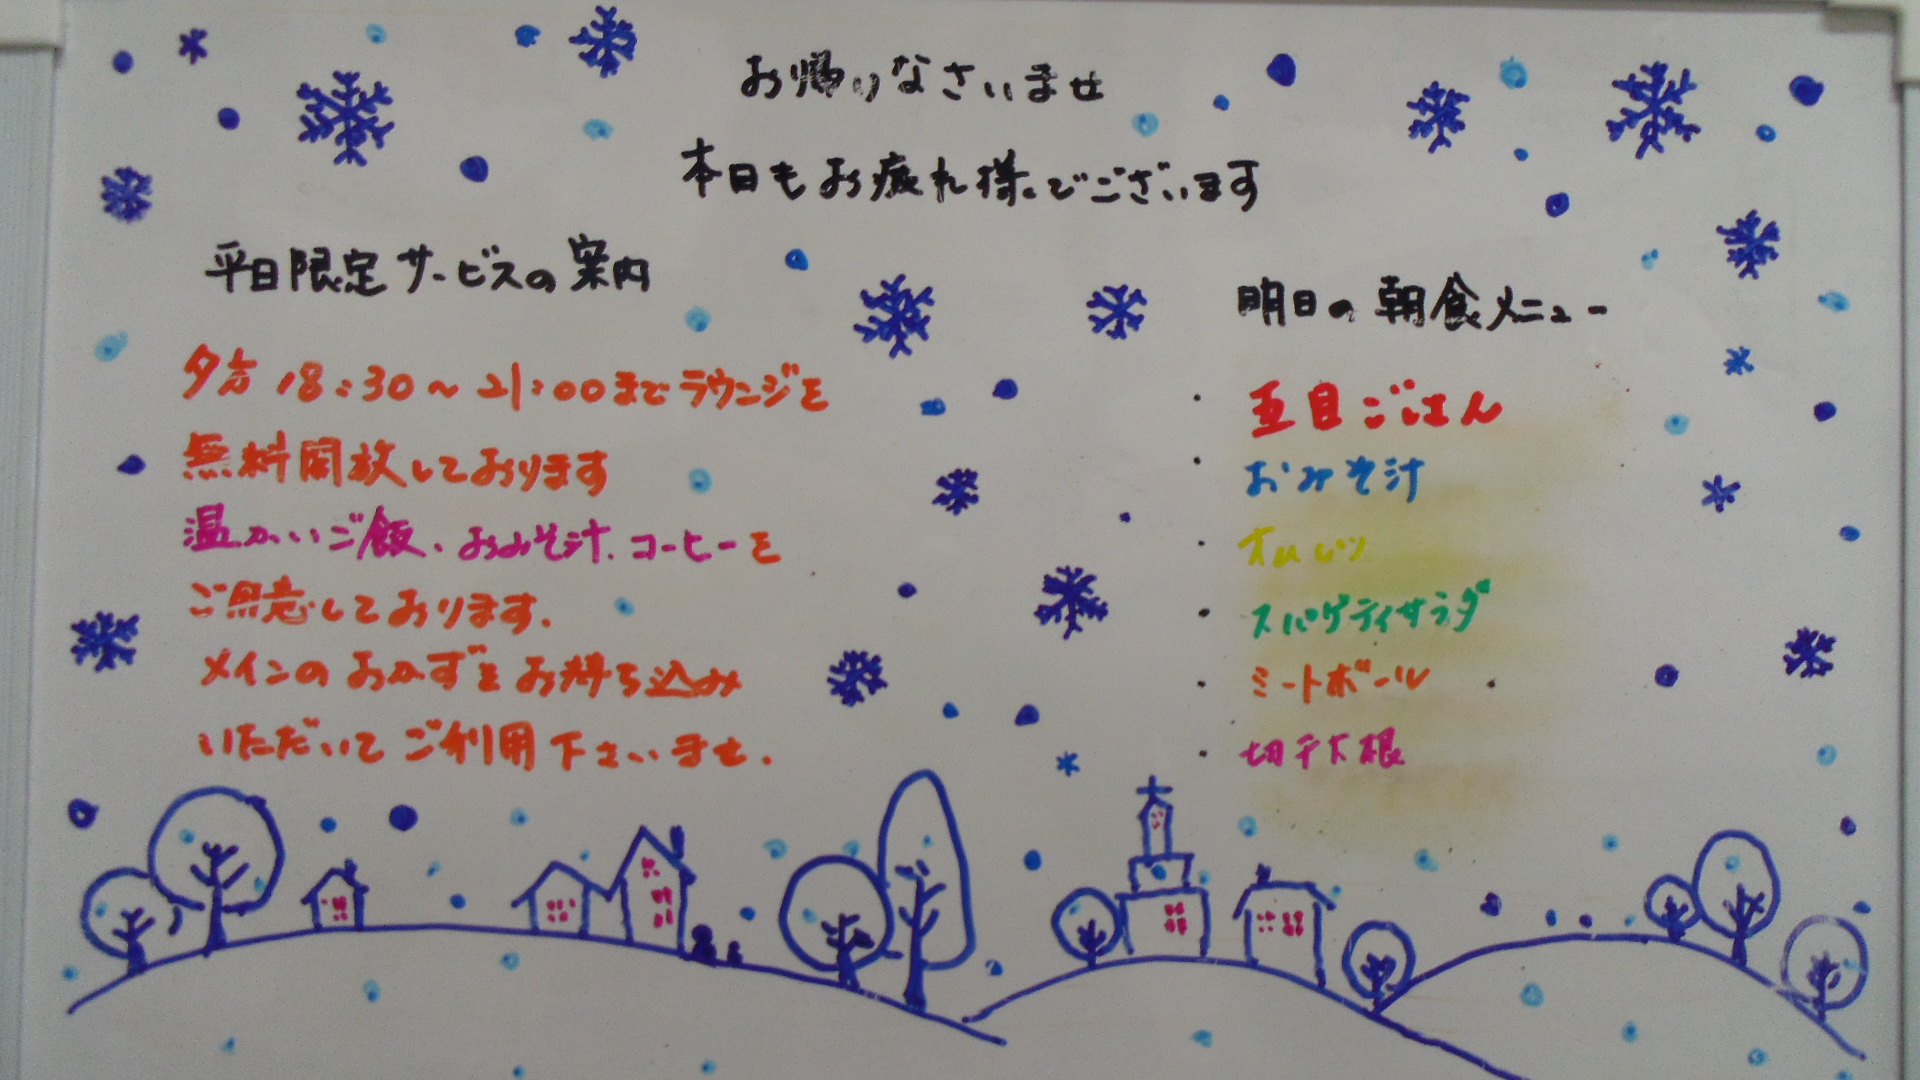 お帰りなさいませ
本日もお疲れ様でございます
平日限定サービスの案内
夕方 18:30〜21:00までラウンジを
無料開放しております
温かいご飯、おみそ汁、コーヒーを
ご用意しております.
メインのおかずをお持ち込み
いただいてご利用下さいませ.
明日の朝食メニュー
・ 五目ごはん
・ おみそ汁
・ オムレツ
・ スパゲティサラダ
・ ミートボール
・ 切干大根